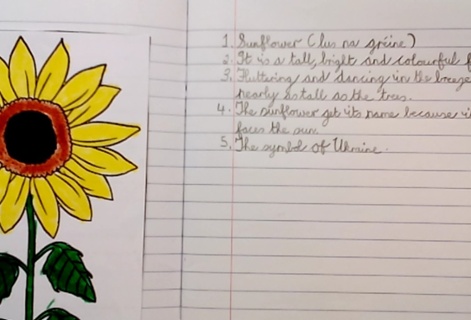 1. Sunflower (lus na gréine)
2. It is a tall, bright and colourful
3. Fluttering and dancing in the breeze
nearly as tall as the trees.
4. The sunflower get its name because
faces the sun.
5. The symbol of Ukraine.